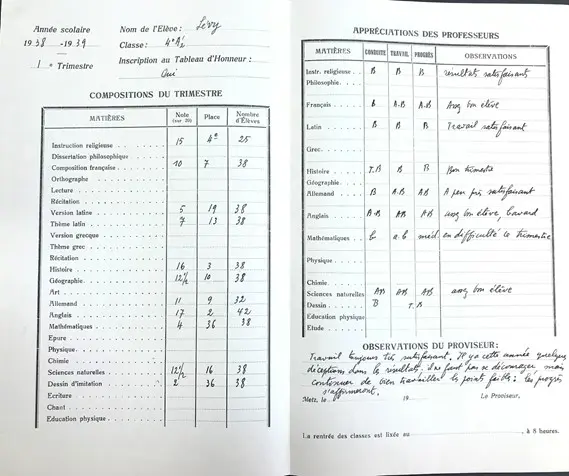 Année scolaire
1938 -1939
1er Trimestre
Nom de l'Elève : Lévy
Classe : 4e A'2
Inscription au Tableau d'Honneur :
Oui
COMPOSITIONS DU TRIMESTRE
MATIÈRES Note (sur 20) Place Nombre d'Élèves
Instruction religieuse 15 4e 25
Dissertation philosophique
Composition française 10 7 38
Orthographe
Lecture
Récitation
Version latine 5 19 38
Thème latin 7 13 38
Version grecque
Thème grec
Récitation
Histoire 16 3 38
Géographie 12 1/2 10 38
Art
Allemand 11 9 32
Anglais 17 2 42
Mathématiques 4 36 38
Epure
Physique
Chimie
Sciences naturelles 12 1/2 16 38
Dessin d'imitation 2 36 38
Ecriture
Chant
Education physique
APPRÉCIATIONS DES PROFESSEURS
MATIÈRES CONDUITE TRAVAIL PROGRÈS OBSERVATIONS
Instr. religieuse B B B résultats satisfaisants
Philosophie
Français B A.B A.B Assez bon élève
Latin B B B Travail satisfaisant
Grec
Histoire T.B B B Bon trimestre
Géographie
Allemand B A.B AB A peu près satisfaisant
Anglais A.B AB AB assez bon élève, bavard
Mathématiques b a.b méd. en difficulté ce trimestre
Physique
Chimie
Sciences naturelles AB AB AB assez bon élève
Dessin B T.B
Education physique
Etude
OBSERVATIONS DU PROVISEUR :
Travail toujours très satisfaisant. Il y a cette année quelques
déceptions dans les résultats : il ne faut pas se décourager mais
continuer de bien travailler les points faibles : les progrès
s'affirmeront.
Metz, le 19
Le Proviseur,
La rentrée des classes est fixée au , à 8 heures.